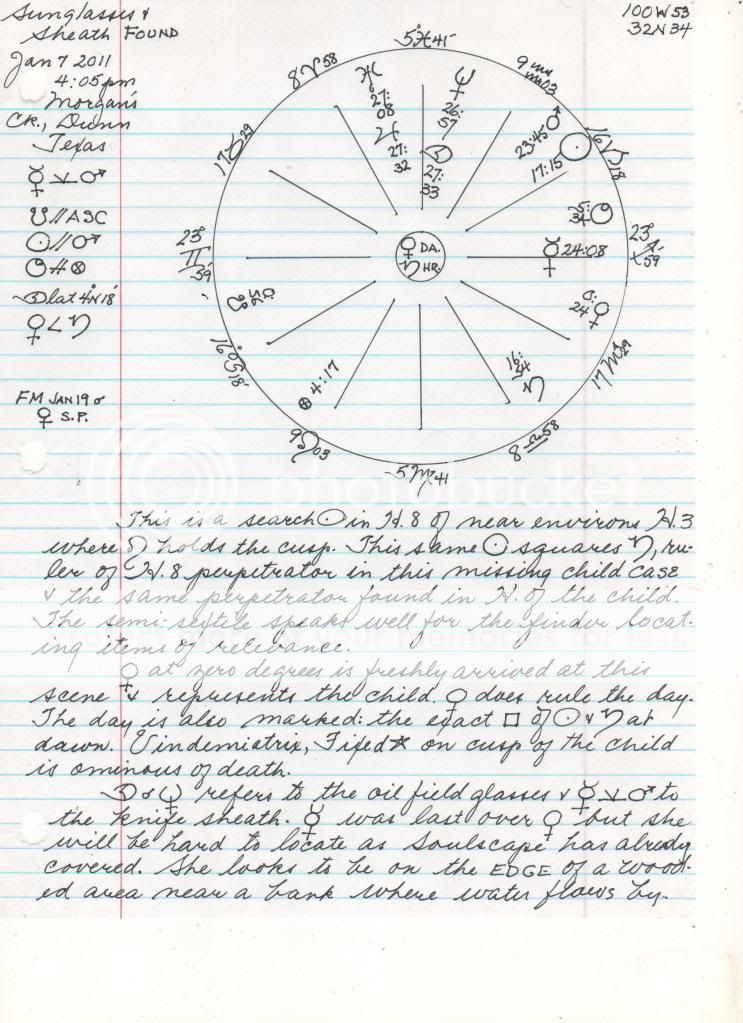 Sunglasses &
Sheath FOUND
Jan 7 2011
4:05pm
Morgan's
CR., Dunn
Texas
☿ ⚺ ♂
☋ // ASC
☉ // ♂
# ⊗
☽ lat 4N18'
♀ ∠ ♄
FM JAN 19 ☌
♀ S.P.
100W53
32N34
5♓41
9♒03
16♑18
23°♐59
17♏29
8♎58
5♍41
9♌03
16♋18
23°♊59
17♉29
8♈58
♅ 27:08
♃ 27:32
26:57
☽ 27:33
♂ 23:45
☉ 17:15
5:34
☿ 24:08
♀ 0:24
♄ 16:54
⊗ 4:17
♀ DA.
♄ HR.
photobucket
This is a search ☉ in H.8 of near environs H.3
where ♌ holds the cusp. This same ☉ squares ♄, ru-
ler of H.8 perpetrator in this missing child case
& the same perpetrator found in H of the child.
The semi-sextile speaks well for the finder locat-
ing items of relevance.
♀ at zero degrees is freshly arrived at this
scene & represents the child. ♀ does rule the day.
The day is also marked: the exact □ of ☉ & ♄ at
dawn. Vindemiatrix, Fixed ☆ on cusp of the child
is ominous of death.
☽ ☌ ♆ refers to the oil field glasses & ☿ ⚺ ♂ to
the knife sheath. ☿ was last over ♀ but she
will be hard to locate as Soulscape has already
covered. She looks to be on the EDGE of a wood-
ed area near a bank where water flows by.